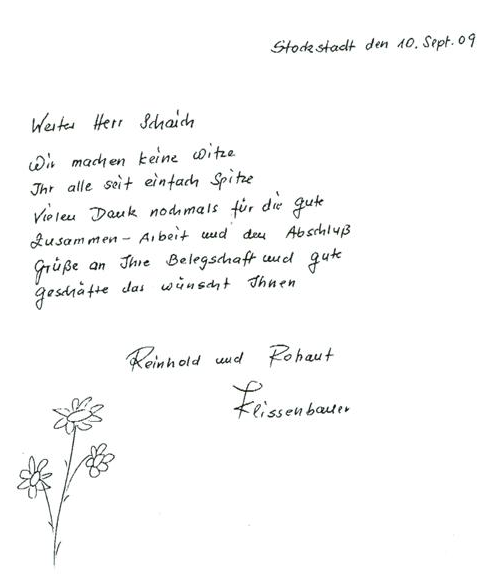 Stockstadt den 10. Sept. 09
Werter Herr Schaich
Wir machen keine Witze
Ihr alle seit einfach Spitze
Vielen Dank nochmals für die gute
Zusammen - Arbeit und den Abschluß
Grüße an Ihre Belegschaft und gute
Geschäfte das wünscht Ihnen
Reinhold und